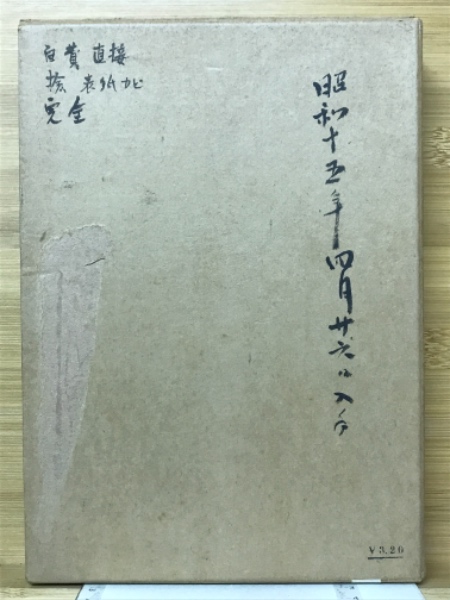 直接
表紙
完全
昭和十五年四月廿六日入手
¥3.20